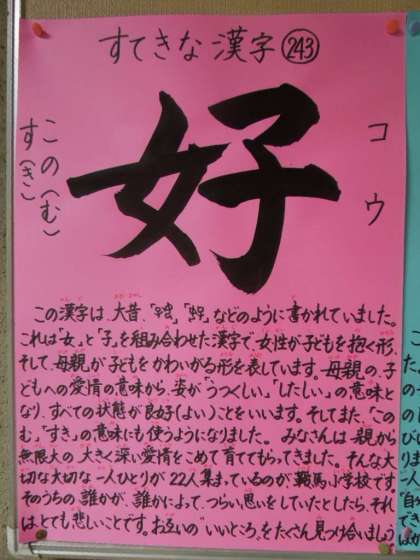 すてきな漢字 243
好
コウ
この(む)
す(き)
この漢字は、大昔、「」「」などのように書かれていました。
これは「女」と「子」を組み合わせた漢字で、女性が子どもを抱く形、
そして、母親が子どもをかわいがる形を表しています。母親の、子
どもへの愛情の意味から、姿が「うつくしい」「したしい」の意味と
なり、すべての状態が良好(よい)ことをいいます。そしてまた、「この
む」「すき」の意味にも使うようになりました。 みなさんは親から
無限大の大きく深い愛情をこめて育ててもらってきました。そんな大
切な大切な一人ひとりが22人集まっているのが鞍馬小学校です
そのうちの誰かが、誰かによって、つらい思いをしていたとしたら、それ
はとても悲しいことです。お互いの"いいところ"をたくさん見つけ合いましょう